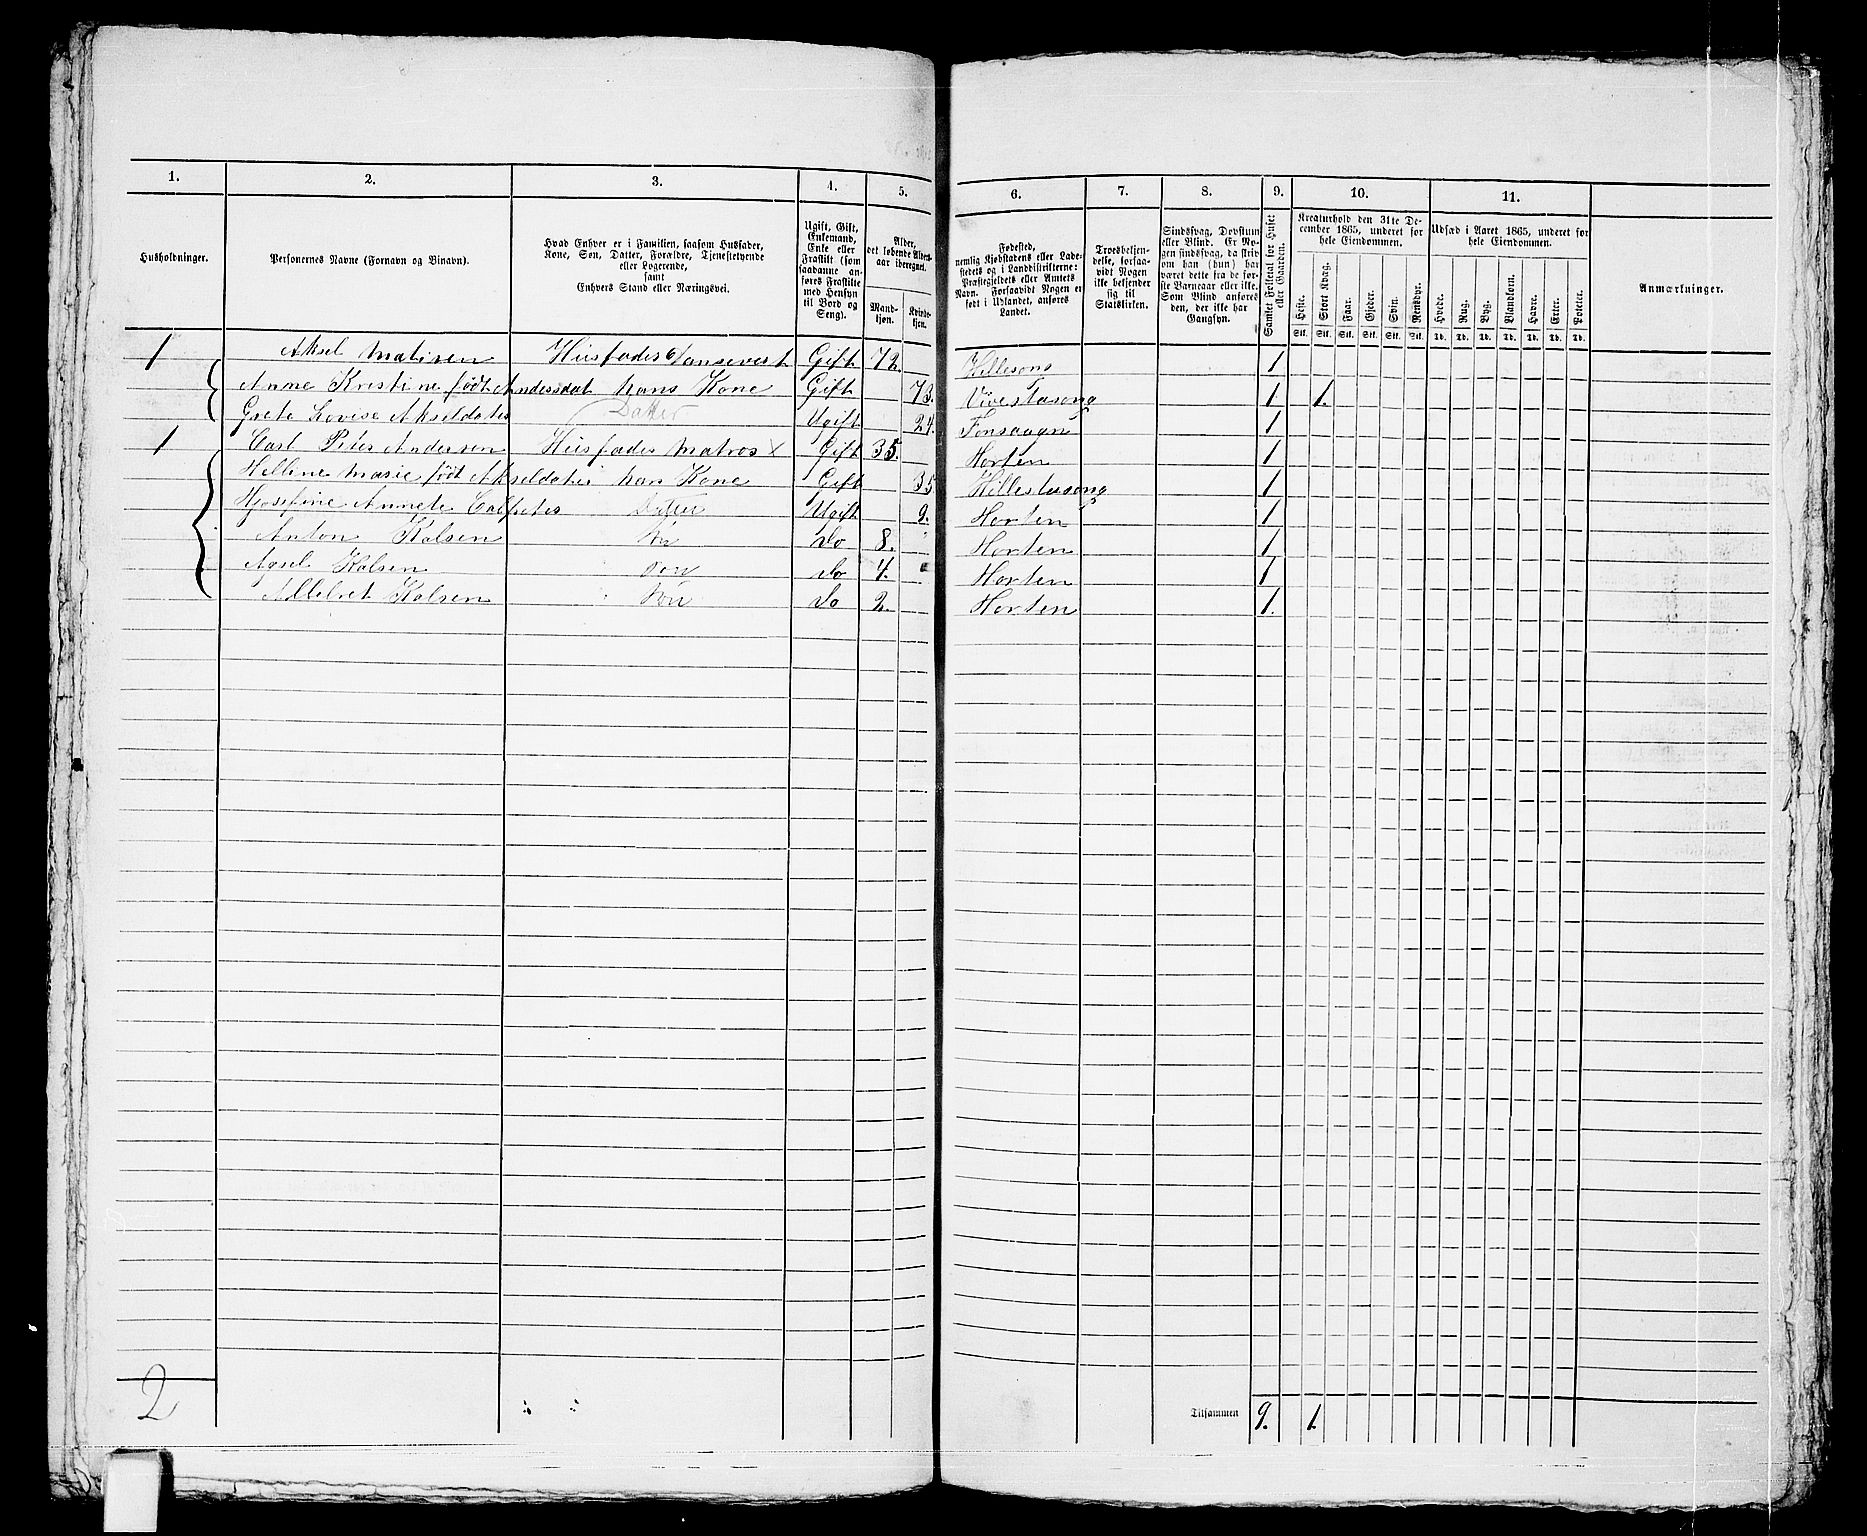 1. 2. 3. 4. 5. 6. 7. 8. 9. 10. 11.
Husholdninger.
Personernes Navne (Fornavn og Binavn).
Hvad Enhver er i Familien, saasom Husfader,
Kone, Søn, Datter, Forældre, Tjenestetyende
eller Logerende,
samt
Enhvers Stand eller Næringsvei.
Ugift, Gift,
Enkemand,
Enke eller
Fraskilt (som
saadanne an-
føres Fraskilte
med Hensyn
til Bord og
Seng).
Alder,
det løbende Alders-
aar iberegnet.
Mand-
kjøn.
Kvinde-
kjøn.
Fødested,
nemlig Kjøbstadens eller Lade-
stedets og i Landdistrikterne:
Præstegjeldets eller Amtets
Navn. Forsaavidt Nogen er
født i Udlandet, anføres
Landet.
Troesbekjen-
delse, forsaa-
vidt Nogen
ikke bekjender
sig til
Statskirken.
Sindssvag, Døvstum
eller Blind. Er No-
gen sindssvag, da skriv
om han (hun) har
været dette fra de før-
ste Barneaar eller ikke.
Som Blind anføres
den, der ikke har
Gangsyn.
Samlet Folketal for Huset
eller Gaarden.
Kreaturhold den 31te De-
cember 1865, underet for
hele Eiendommen.
Heste. Stort Kvæg. Faar. Gjeder. Svin. Rensdyr.
Stk. Stk. Stk. Stk. Stk. Stk.
Udsæd i Aaret 1865, underet for
hele Eiendommen.
Hvede. Rug. Byg. Blandkorn. Havre. Erter. Poteter.
Td. Td. Td. Td. Td. Td. Td.
Anmærkninger.
1 Aksel Matisen Husfader Gift 72. 1
Anne Kristine født Andersdat hans Kone Gift 73. 1 1.
Grete Lovise Akseldater Datter Ugift 24. 1
1 Carl Peter Andersen Husfader Matros x Gift 35. Horten 1
Hellene Marie født Akseldater hans Kone Gift 35 1
Annete Datter Ugift 9. Horten 1
Anton Kalsen Søn Do 8. Horten 1
Agsel Kalsen Søn Do 4. Horten 1
Kalsen Søn Do 2. Horten 1.
2 Tilsammen 9. 1.